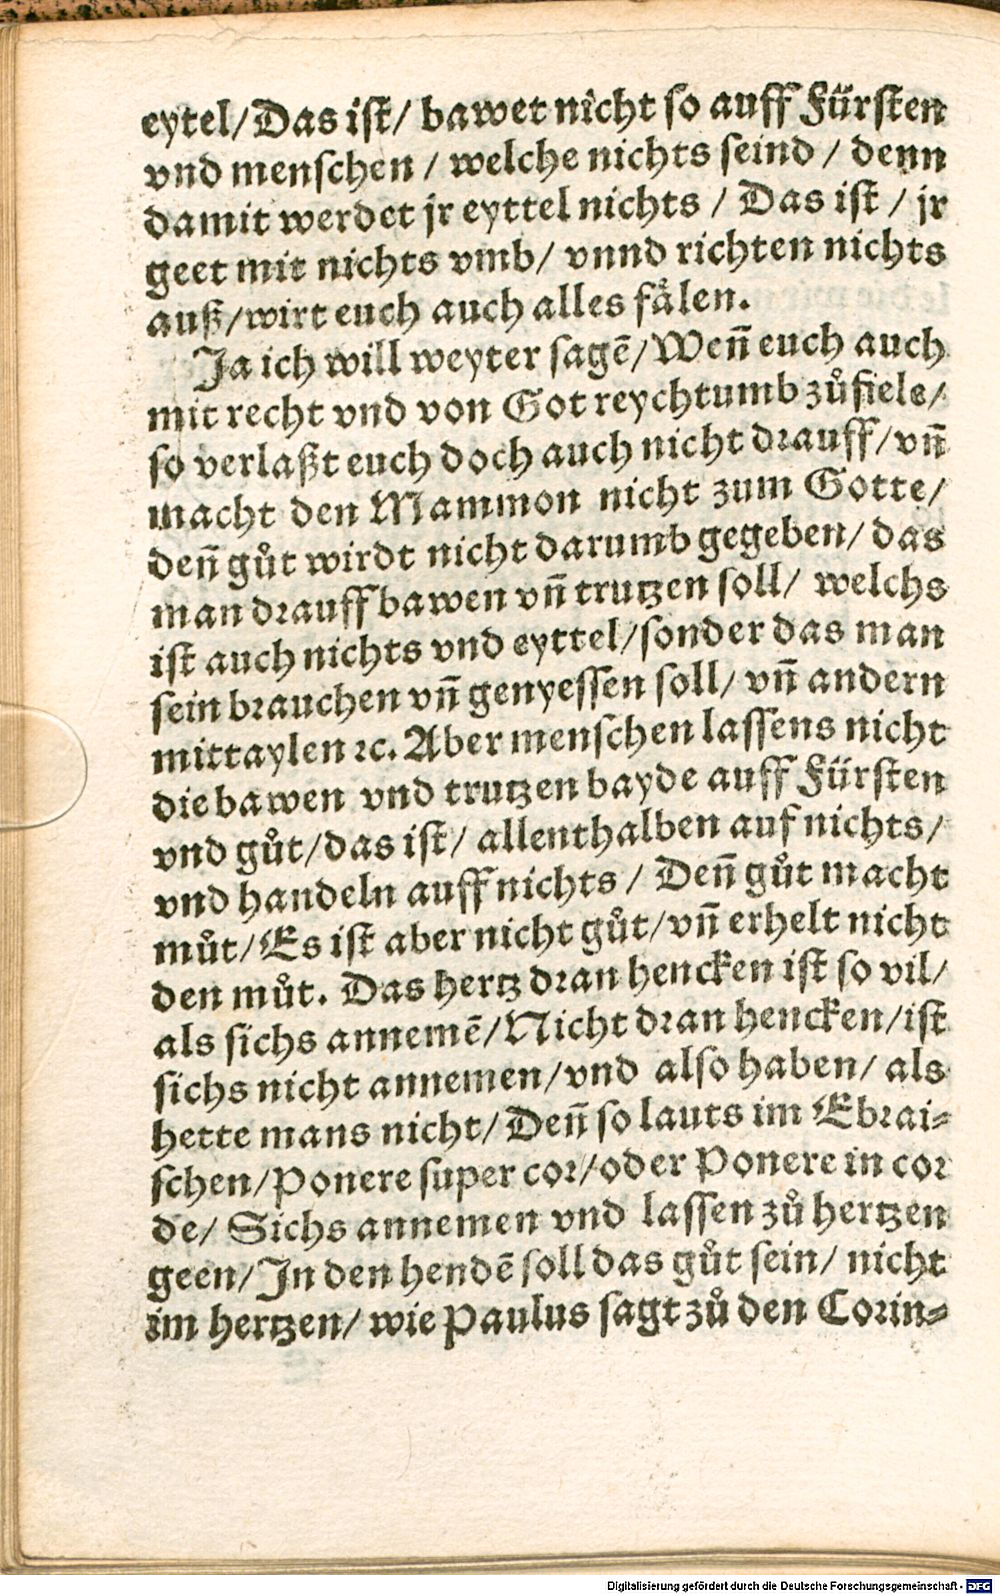 eytel/Das ist/ bawet nicht so auff Fürsten
vnd menschen / welche nichts seind / denn
damit werdet jr eyttel nichts / Das ist / jr
geet mit nichts vmb/ vnnd richten nichts
auß/wirt euch auch alles fälen.
Ja ich will weyter sagē/Wen̄ euch auch
mit recht vnd von Got reychtumb zůfiele/
so verlaßt euch doch auch nicht drauff/vn̄
macht den Mammon nicht zum Gotte/
den̄ gůt wirdt nicht darumb gegeben/ das
man drauff bawen vn̄ trutzen soll/ welchs
ist auch nichts vnd eyttel/sonder das man
sein brauchen vn̄ genyessen soll/ vn̄ andern
mittaylen ꝛc. Aber menschen lassens nicht
die bawen vnd trutzen bayde auff Fürsten
vnd gůt/das ist/ allenthalben auf nichts/
vnd handeln auff nichts / Den̄ gůt macht
můt/Es ist aber nicht gůt/vn̄ erhelt nicht
den můt. Das hertz dran hencken ist so vil/
als sichs annemē/Nicht dran hencken/ist
sichs nicht annemen/vnd also haben/ als
hette mans nicht/Den̄ so lauts im Ebrai⸗
schen/Ponere super cor/oder Ponere in cor
de/ Sichs annemen vnd lassen zů hertzen
geen/In den hendē soll das gůt sein/ nicht
im hertzen/ wie Paulus sagt zů den Corin⸗
Digitalisierung gefördert durch die Deutsche Forschungsgemeinschaft - DFG